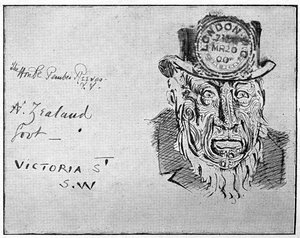 The Honble Pember Reeves
N. Zealand
Govt —
VICTORIA ST
S.W
LONDON
MR 20
00